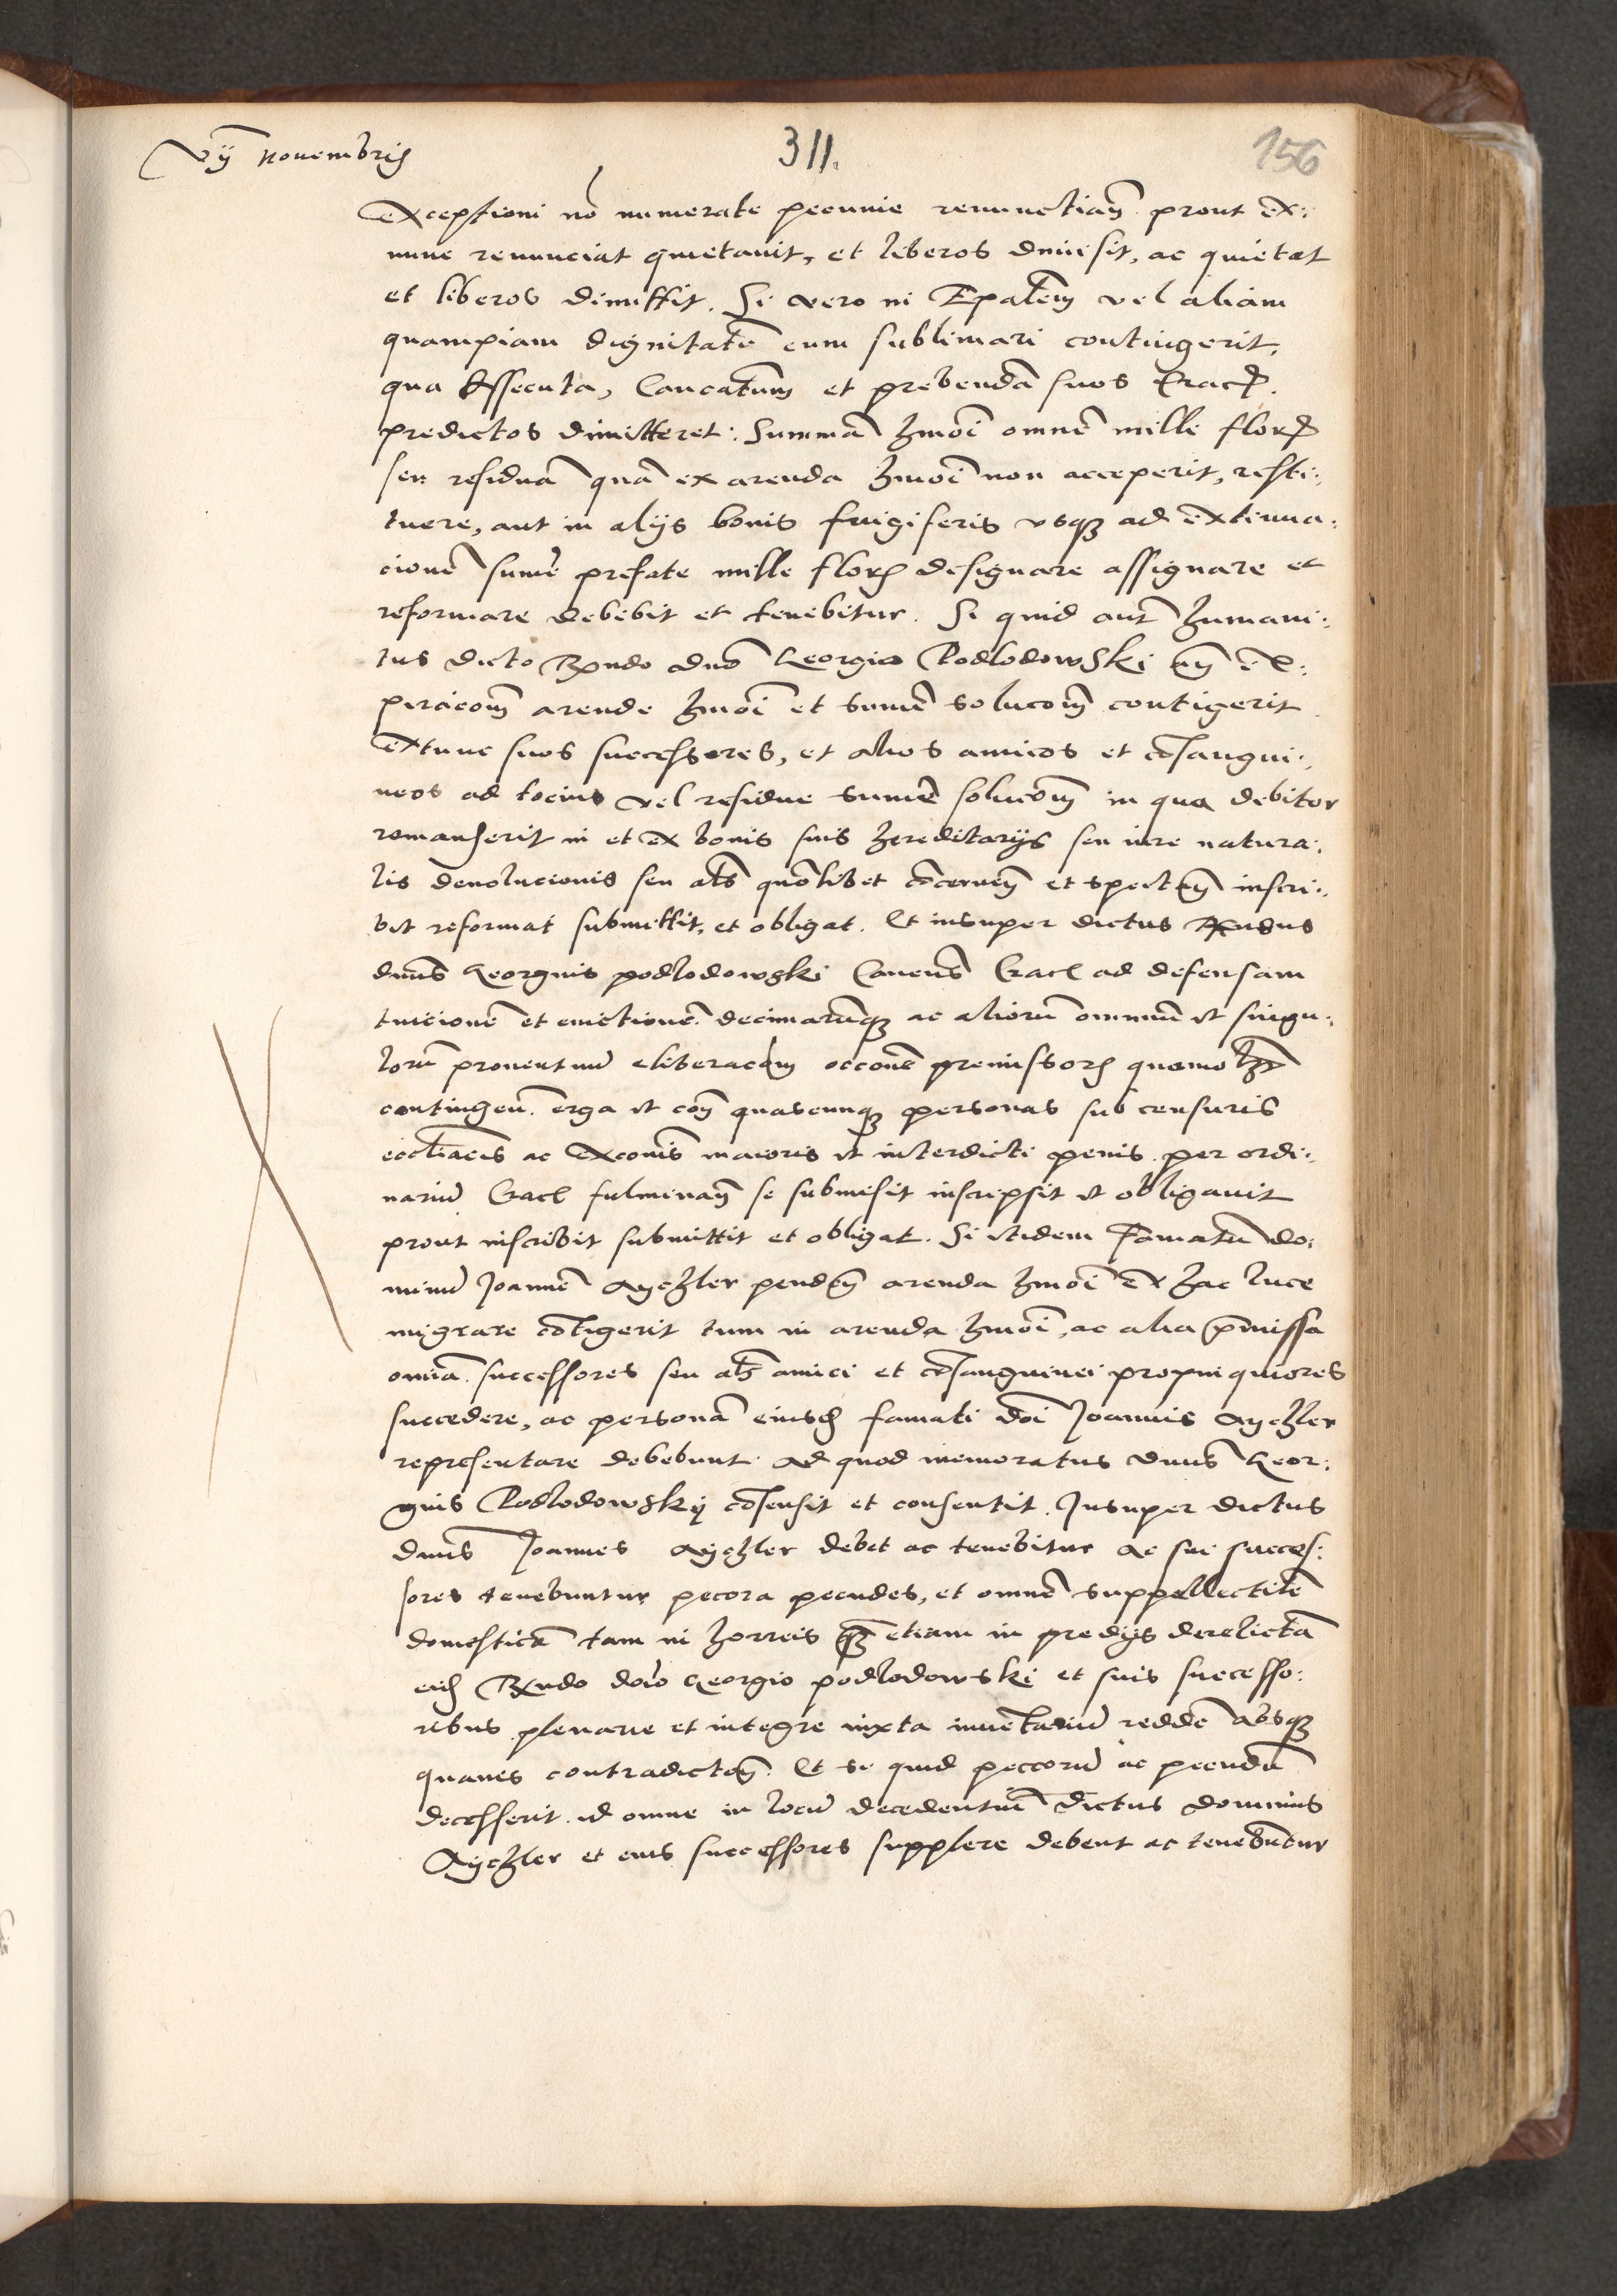 vij Novembris
311.
156
Exceptioni nō numerate pecunie renunctiaȝ prout ex:
nunc renunciat quietavit, et liberos dimisit, ac quietat
et liberos dimittit. Si vero in Epālem vel aliam
quampiam dignitatē eum sublimari contingerit,
qua Assecuta, CanCatum et prebendā suos Crac.
predictos dimitteret: Summā hmōi omnē mille flor
seu residuā quā ex arenda hmōi non acceperit, resti:
tuere, aut in alijs bonis frugiferis usqȝ ad extenua:
cionē sume prefate mille flor designare assignare et
reformare debebit et tenebitur. Si quid aut humani:
tus dicto Rndo dno Georgio Podlodowski añ ex:
piracōm arende hmōi et summe solucōm contigerit
extunc suos successores, et alios amicos et cōsangui:
neos ad tocius vel residue summe solucōm in qua debitor
romanserit in et ex bonis suis hereditarijs seu iure natura:
lis devolucionis seu als quōlibet cōcerneñ et spectañ inscri:
bit reformat submittit, et obligat. Et insuper dictus Rndus
dnus Georgius podlodowski Canens Crac ad defensam
tuicionē et evictionē decimarūqȝ ac aliorū omniū et singu:
lorū proventuū eliberacōm occōne premissorū quomolȝ
contingeñ. erga et coñ quascunqȝ personas sub censuris
eccliacis ac Exconis maioris et interdicti penis per ordi:
nariū Crac fulminañ se submisit inscripsit et obligavit
prout inscribit submittit et obligat. Si itidem Famatū do:
minū Joannē Aychler pendeñ arenda hmōi ex hac luce
migrare cōtigerit tum in arenda hmōi, ac alia p̄missa
omnia successores seu als amici et cōsanguinei propinquiores
succedere, ac personā eiusd famati dni Joannis Aychler
representare debebunt. Ad quod memoratus dnus Geor:
gius Podlodowskij cōsensit et consentit. Insuper dictus
dnus Joannes Aychler debet ac tenebitur ac sui succes:
sores tenebuntur pecora pecudes, et omnē suppellectilē
domesticā tam in horreis qȝ etiam in predijs derelictā
eid Rndo dno Georgio podlodowski et suis successo:
ribus plenarie et integre iuxta inventariū reddē absqȝ
quavis contradictōē. Et si quid peccorū ac pecudū
decesserit id omne in locū decedentiū dictus dominus
Aychler et eius successores supplere debent ac tenebuntur